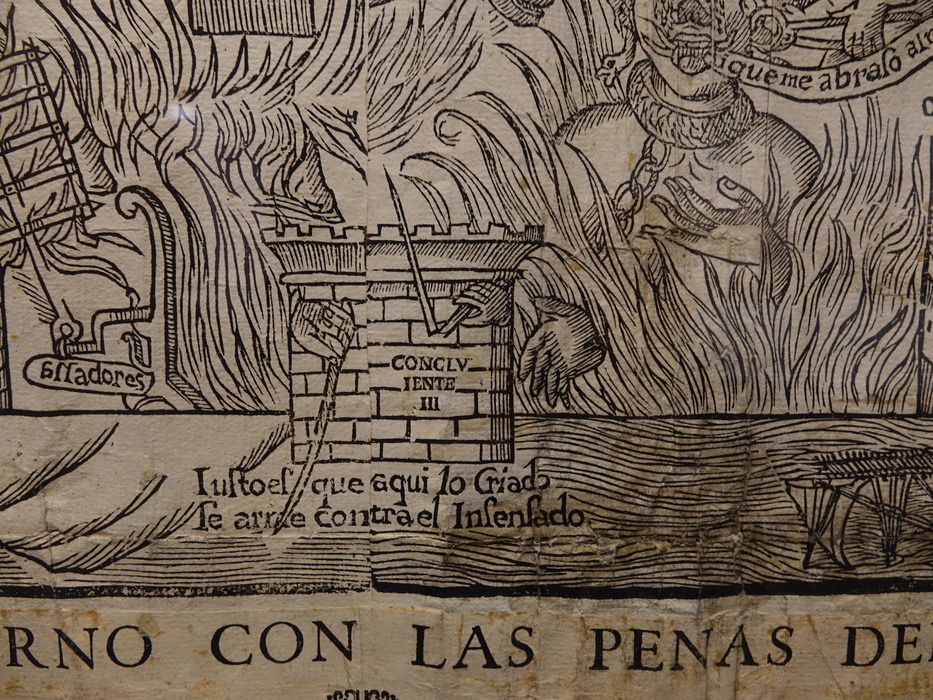 que me abraso
assadores
CONCLV
IENTE
III
Iusto es, que aqui lo Criado
se arme contra el Insensado
RNO CON LAS PENAS DE